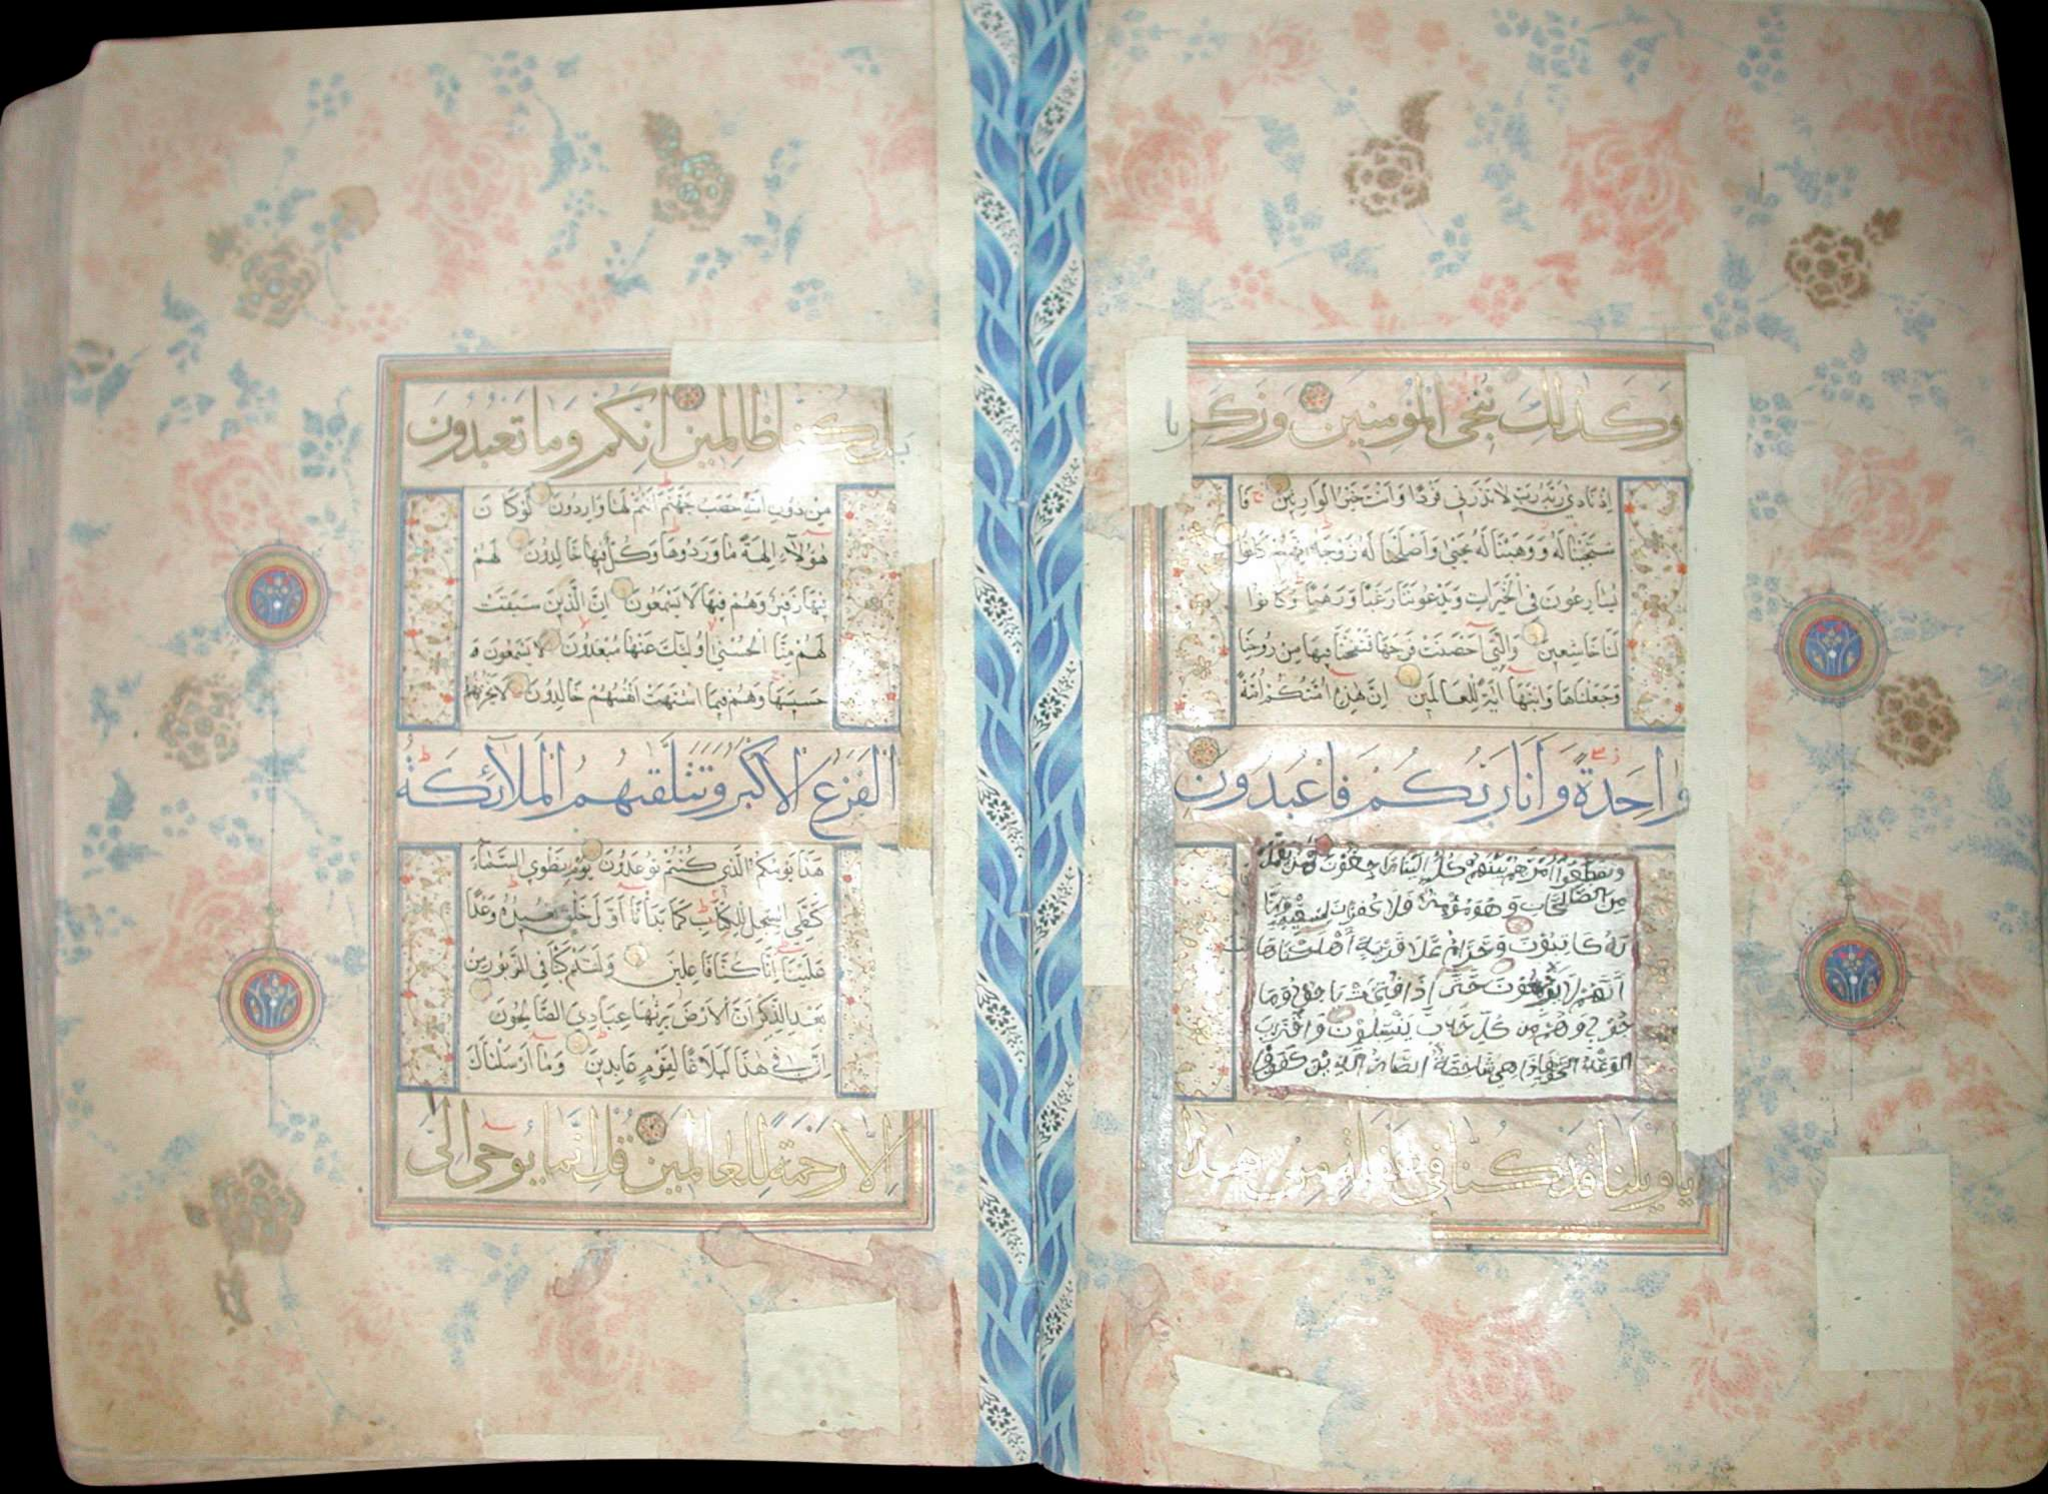 وَكَذٰلِكَ نُنْجِي الْمُؤْمِنِينَ وَزَكَرِيَّا
اِذْ نَادٰي رَبَّهُ رَبِّ لَا تَذَرْنِي فَرْدًا وَاَنْتَ خَيْرُ الْوَارِثِينَ فَا
سْتَجَبْنَا لَهُ وَوَهَبْنَا لَهُ يَحْيٰي وَاَصْلَحْنَا لَهُ زَوْجَهُ اِنَّهُمْ كَانُوا
يُسَارِعُونَ فِي الْخَيْرَاتِ وَيَدْعُونَنَا رَغَبًا وَرَهَبًا وَكَانُوا
لَنَا خَاشِعِينَ وَالَّتِي اَحْصَنَتْ فَرْجَهَا فَنَفَخْنَا فِيهَا مِنْ رُوحِنَا
وَجَعَلْنَاهَا وَابْنَهَا اٰيَةً لِلْعَالَمِينَ اِنَّ هٰذِهِ اُمَّتُكُمْ اُمَّةً
وَاحِدَةً وَاَنَا رَبُّكُمْ فَاعْبُدُونِ
وتقطعوا امرهم بينهم كل الينا راجعون فمن يعمل
من الصالحات وهو مؤمن فلا كفران لسعيه وانا
له كاتبون وحرام علا قرية اهلكناها
انهم لا يرجعون حتى اذا فتحت ياجوج وما
جوج وهم من كل حدب ينسلون واقترب
الوعد الحق فاذا هي شاخصة ابصار الذين كفروا
يَا وَيْلَنَا قَدْ كُنَّا فِي غَفْلَةٍ مِنْ هٰذَا
بَلْ كُنَّا ظَالِمِينَ اِنَّكُمْ وَمَا تَعْبُدُونَ
مِنْ دُونِ اللّٰهِ حَصَبُ جَهَنَّمَ اَنْتُمْ لَهَا وَارِدُونَ لَوْ كَانَ
هٰؤُلَاءِ اٰلِهَةً مَا وَرَدُوهَا وَكُلٌّ فِيهَا خَالِدُونَ لَهُمْ
فِيهَا زَفِيرٌ وَهُمْ فِيهَا لَا يَسْمَعُونَ اِنَّ الَّذِينَ سَبَقَتْ
لَهُمْ مِنَّا الْحُسْنٰي اُولٰئِكَ عَنْهَا مُبْعَدُونَ لَا يَسْمَعُونَ
حَسِيسَهَا وَهُمْ فِيمَا اشْتَهَتْ اَنْفُسُهُمْ خَالِدُونَ لَا يَحْزُنُهُمُ
الْفَزَعُ الْاَكْبَرُ وَتَتَلَقّٰيهُمُ الْمَلَائِكَةُ
هٰذَا يَوْمُكُمُ الَّذِي كُنْتُمْ تُوعَدُونَ يَوْمَ نَطْوِي السَّمَاءَ
كَطَيِّ السِّجِلِّ لِلْكِتَابِ كَمَا بَدَأْنَا اَوَّلَ خَلْقٍ نُعِيدُهُ وَعْدًا
عَلَيْنَا اِنَّا كُنَّا فَاعِلِينَ وَلَقَدْ كَتَبْنَا فِي الزَّبُورِ مِنْ
بَعْدِ الذِّكْرِ اَنَّ الْاَرْضَ يَرِثُهَا عِبَادِيَ الصَّالِحُونَ
اِنَّ فِي هٰذَا لَبَلَاغًا لِقَوْمٍ عَابِدِينَ وَمَا اَرْسَلْنَاكَ
اِلَّا رَحْمَةً لِلْعَالَمِينَ قُلْ اِنَّمَا يُوحٰي اِلَيَّ